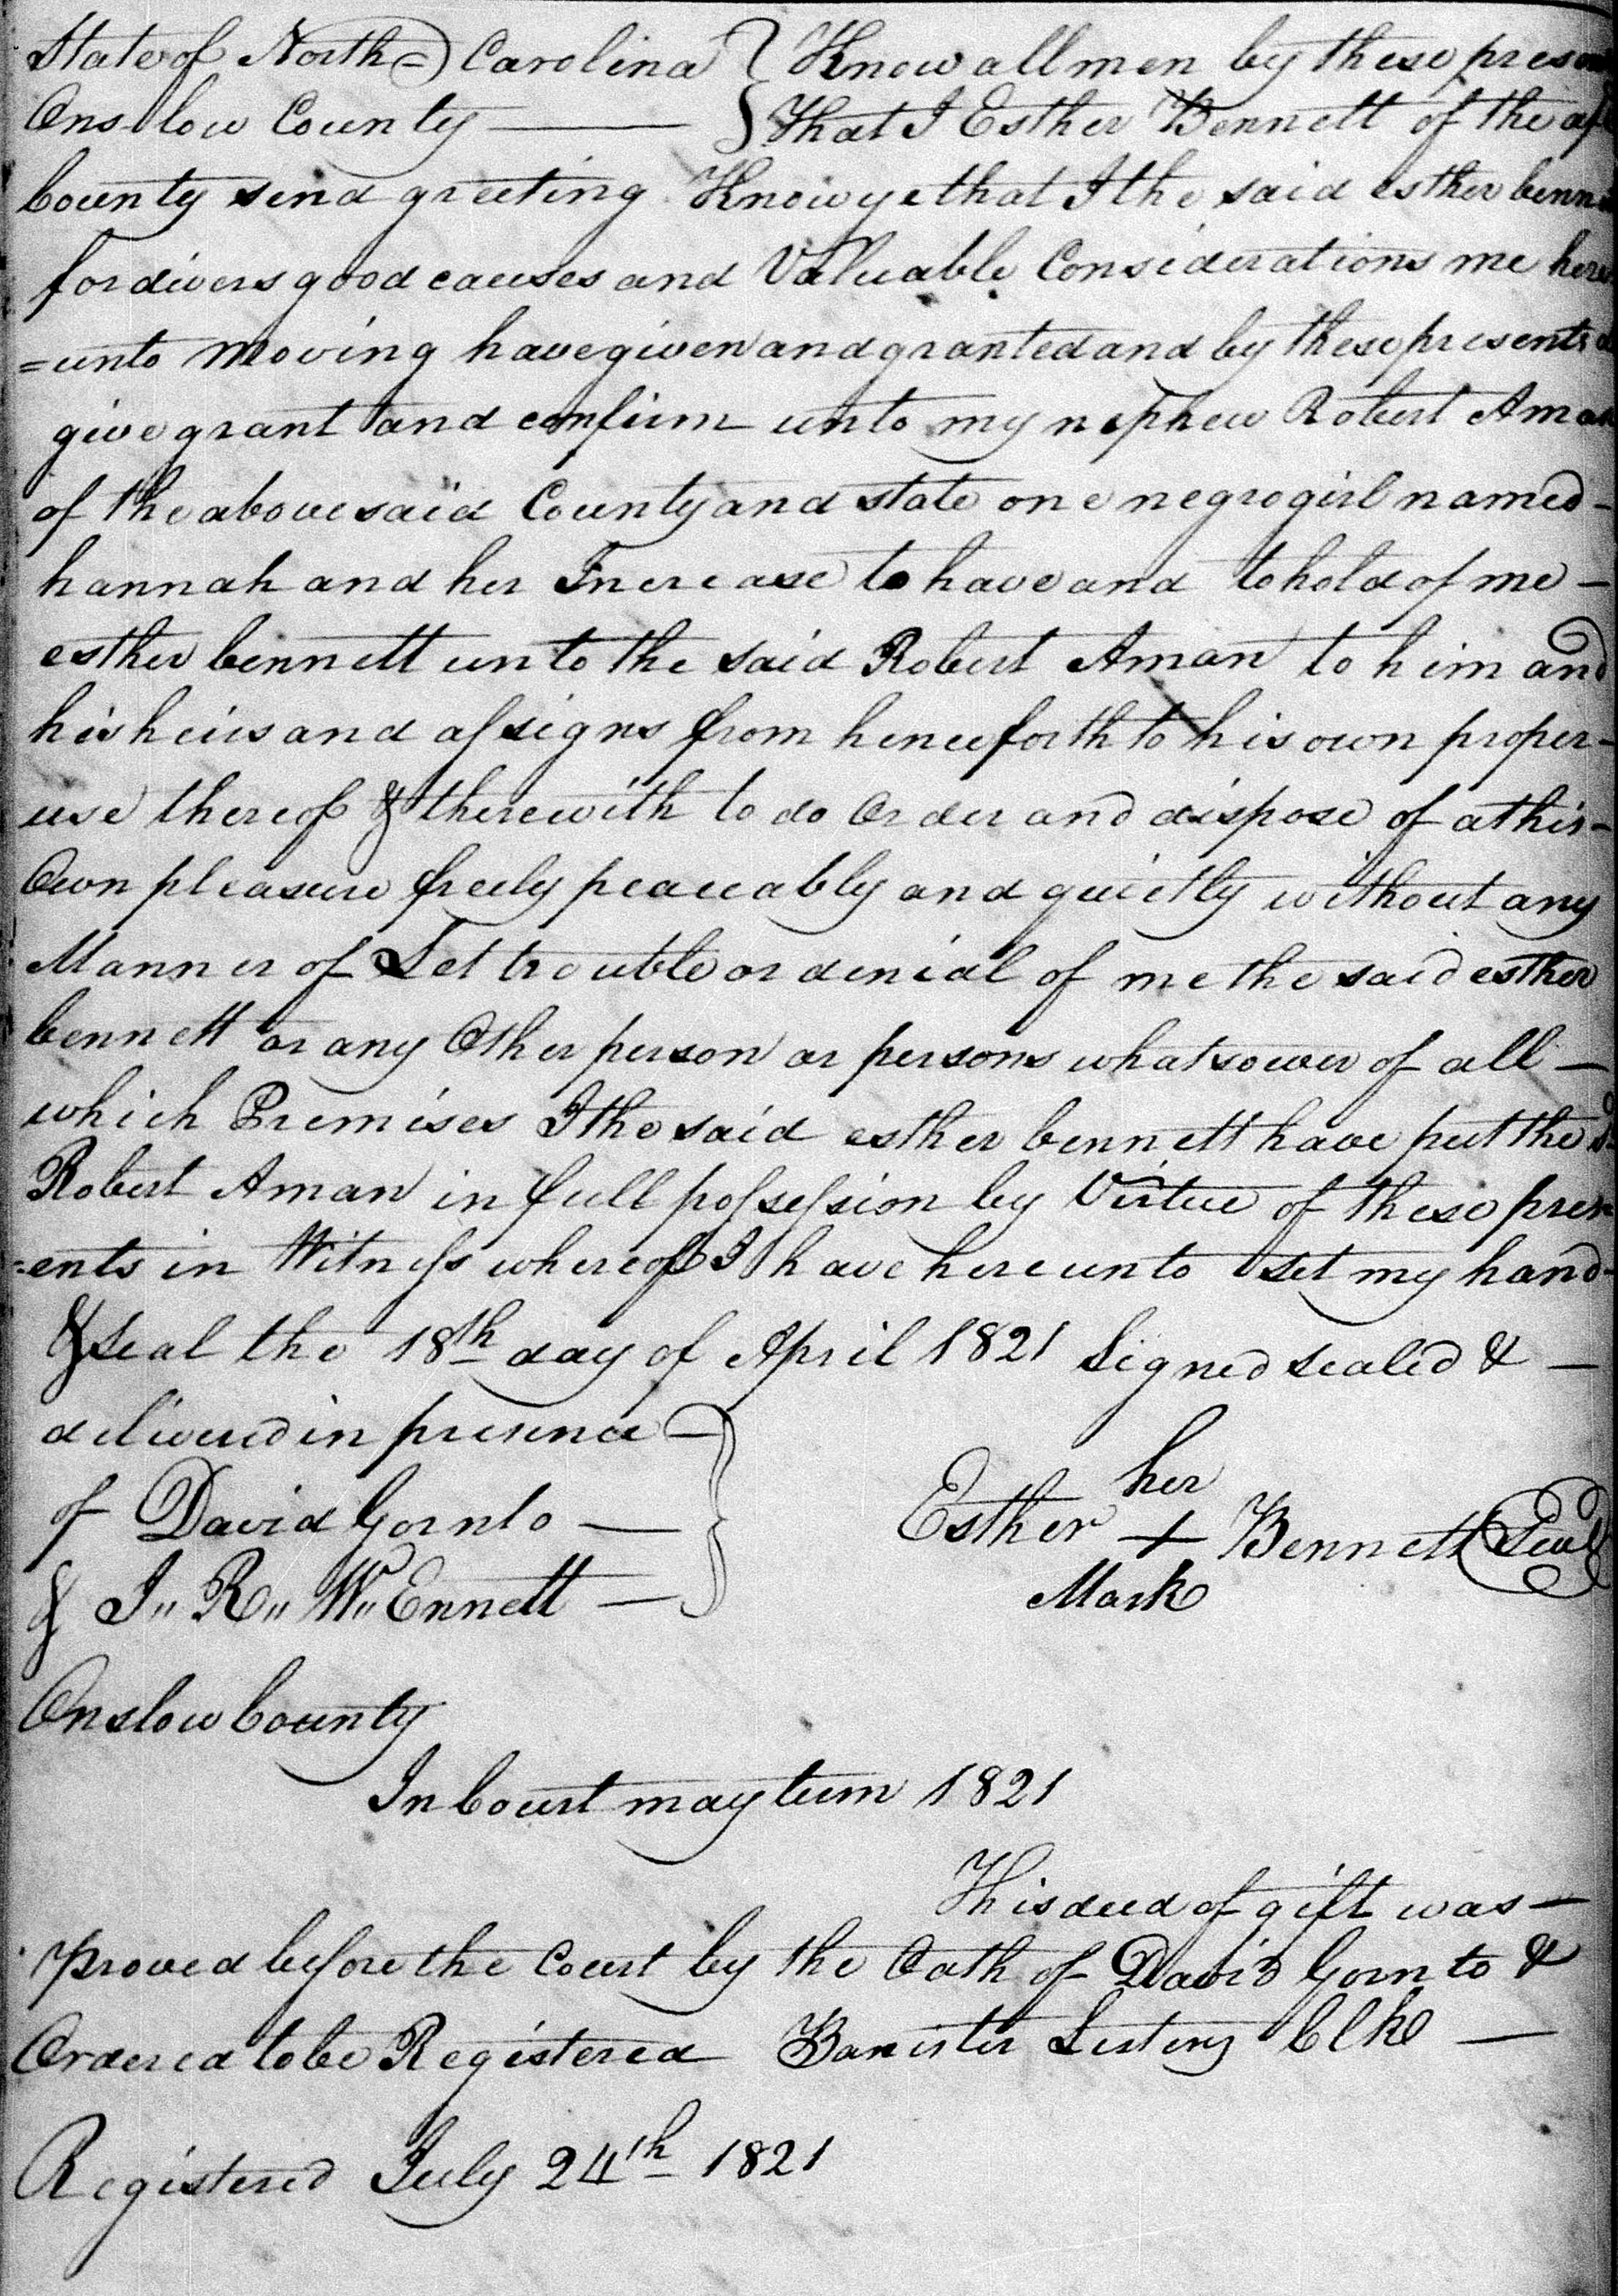 State of North Carolina } Know all men by these presen
Onslow County — } That I Esther Bennett of the af
County send greeting Know ye that I the said esther benn
for divers good causes and Valuable Considerations me here
=unto moving have given and granted and by these presents d
give grant and confirm unto my nephew Robert Aman
of the above said County and state one negro girl named -
hannah and her Increase to have and to hold of me -
esther bennett unto the said Robert Aman to him and
his heirs and assigns from henceforth to his own proper -
use thereof & therewith to do Order and dispose of at his -
Own pleasure freely peaceably and quietly without any
Manner of Let trouble or denial of me the said esther
bennett or any Other person or persons whatsower of all —
which Premises I the said esther bennett have put the sd
Robert Aman in full possession by Virtue of these pres
=ents in Witness whereof I have hereunto set my hand -
& seal the 18th day of April 1821 Signed sealed & —
delivered in presence —
of David Gornto —
& J" R" W" Ennett —
her
Esther + Bennett Seal
Mark
Onslow County
In Court may term 1821
This deed of gift was —
proved before the Court by the Oath of David Gornto &
Ordered to be Registered Banister Lesters Clk —
Registered July 24th 1821